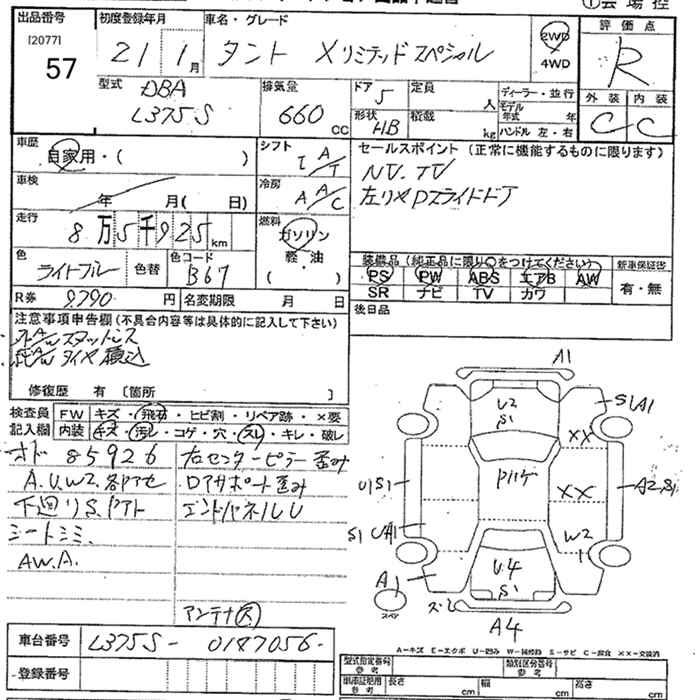 出品番号
[2077]
57
初度登録年月
21 1月
車名・グレード
タント Xリミテッドスペシャル
2WD
4WD
評価点
R
外装 内装
C C
型式
DBA
L375S
排気量
660 CC
ドア
5
形状
HB
定員
人
積載
kg
ディーラー・並行
モデル年式 年
ハンドル 左・右
車歴
自家用・( )
車検
年 月( 日)
走行
8万5千925km
色
ライトブルー
色替
色コード
B67
シフト
I A/T
冷房
A A/C
燃料
ガソリン
軽・油
( )
セールスポイント (正常に機能するものに限ります)
NV.TV
左リヤPスライドドア
装備品 (純正品に限り○をつけてください)
PS PW ABS エアB AW
SR ナビ TV カワ
新車保証書
有・無
後日品
R券 9790円
名変期限 月 日
注意事項申告欄 (不具合内容等は具体的に記入して下さい)
社AWスタッドレス
純AWタイヤ積込
修復歴 有 〔箇所 〕
検査員記入欄
FW キズ・飛石・ヒビ割・リペア跡・×要
内装 キズ・汚レ・コゲ・穴・スレ・キレ・破レ
オド 85926
A.U.W2.
下廻りS.
シートシミ.
AW.A.
右センターピラー歪み
ロアサポート歪み
エンドパネルU
アンテナ欠
車台番号 L375S-0187056-
登録番号
A1
U2
S1
S1A1
XX
XX
U1S1
A2.S1
S1 UA1
W2
1
U4
S1
A1
スペア
スレ
A4
A-キズ E-エクボ U-凹み W-補修跡 S-サビ C-腐食 ××-交換済
型式指定番号
参考
類別区分番号
参考
車検証記載
参考
長さ cm
幅 cm
高さ cm